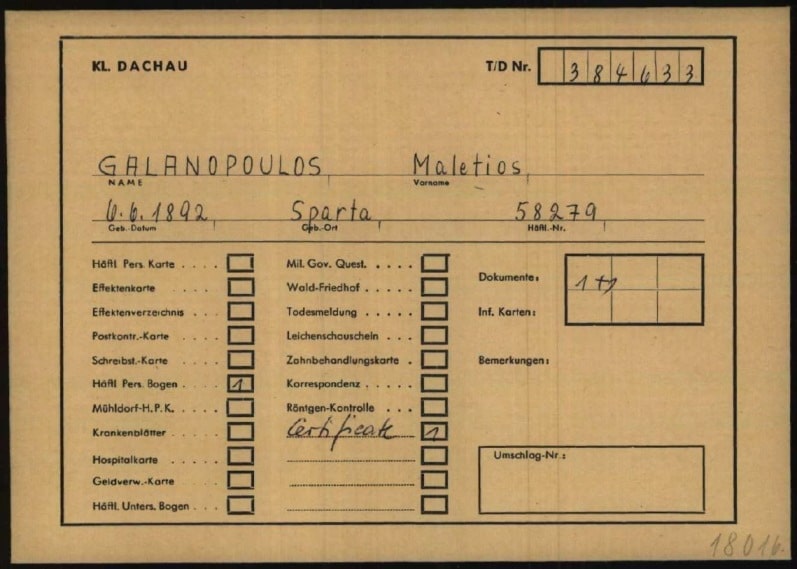 KL. DACHAU T/D Nr. 384633
GALANOPOULOS, Maletios,
NAME Vorname
6.6.1892, Sparta, 58279,
Geb.-Datum Geb.-Ort Häftl.-Nr.
Häftl. Pers. Karte . . . .
Effektenkarte . . . . .
Effektenverzeichnis . . .
Postkontr.-Karte . . . .
Schreibst.-Karte . . . .
Häftl. Pers. Bogen . . . . 1
Mühldorf-H.P.K. . . . .
Krankenblätter . . . . .
Hospitalkarte . . . . .
Geldverw.-Karte . . . .
Häftl. Unters. Bogen . . .
Mil. Gov. Quest. . . . .
Wald-Friedhof . . . . .
Todesmeldung . . . . .
Leichenschauschein . . .
Zahnbehandlungskarte .
Korrespondenz . . . . .
Röntgen-Kontrolle . . .
Certificate 1
Dokumente: 1+1
Inf. Karten:
Bemerkungen:
Umschlag-Nr.:
18016.